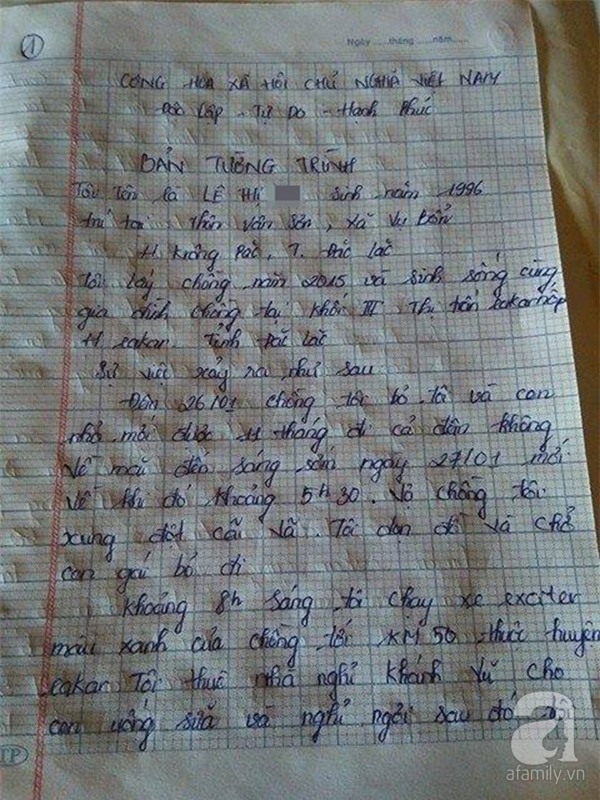 1
Ngày ...... tháng ...... năm......
CỘNG HÒA XÃ HỘI CHỦ NGHĨA VIỆT NAM
Độc Lập - Tự Do - Hạnh Phúc
BẢN TƯỜNG TRÌNH
Tôi Tên là LÊ THị sinh năm 1996
trú tại: thôn Vân Sơn, xã Vụ Bổn
H Krông Pắc, T. Đắc Lắc
Tôi lấy chồng năm 2015 và sinh sống cùng
gia đình chồng tại khối III Thị trấn eakarnốp
H eakar. Tỉnh Đắc Lắc
Sự việc xảy ra như sau
Đêm 26/01 chồng tôi bỏ tôi và con
nhỏ mới được 11 tháng đi cả đêm không
về mãi đến sáng sớm ngày 27/01 mới
về khi đó khoảng 5h30. Vợ chồng tôi
xung đột cãi vã. Tôi dọn đồ và chở
con gái bỏ đi
Khoảng 8h sáng tôi chạy xe exciter
màu xanh của chồng tới KM 50 thuộc huyện
eakar Tôi thuê nhà nghỉ Khánh Vũ cho
con uống sữa và nghỉ ngơi sau đó
TP
a
afamily.vn